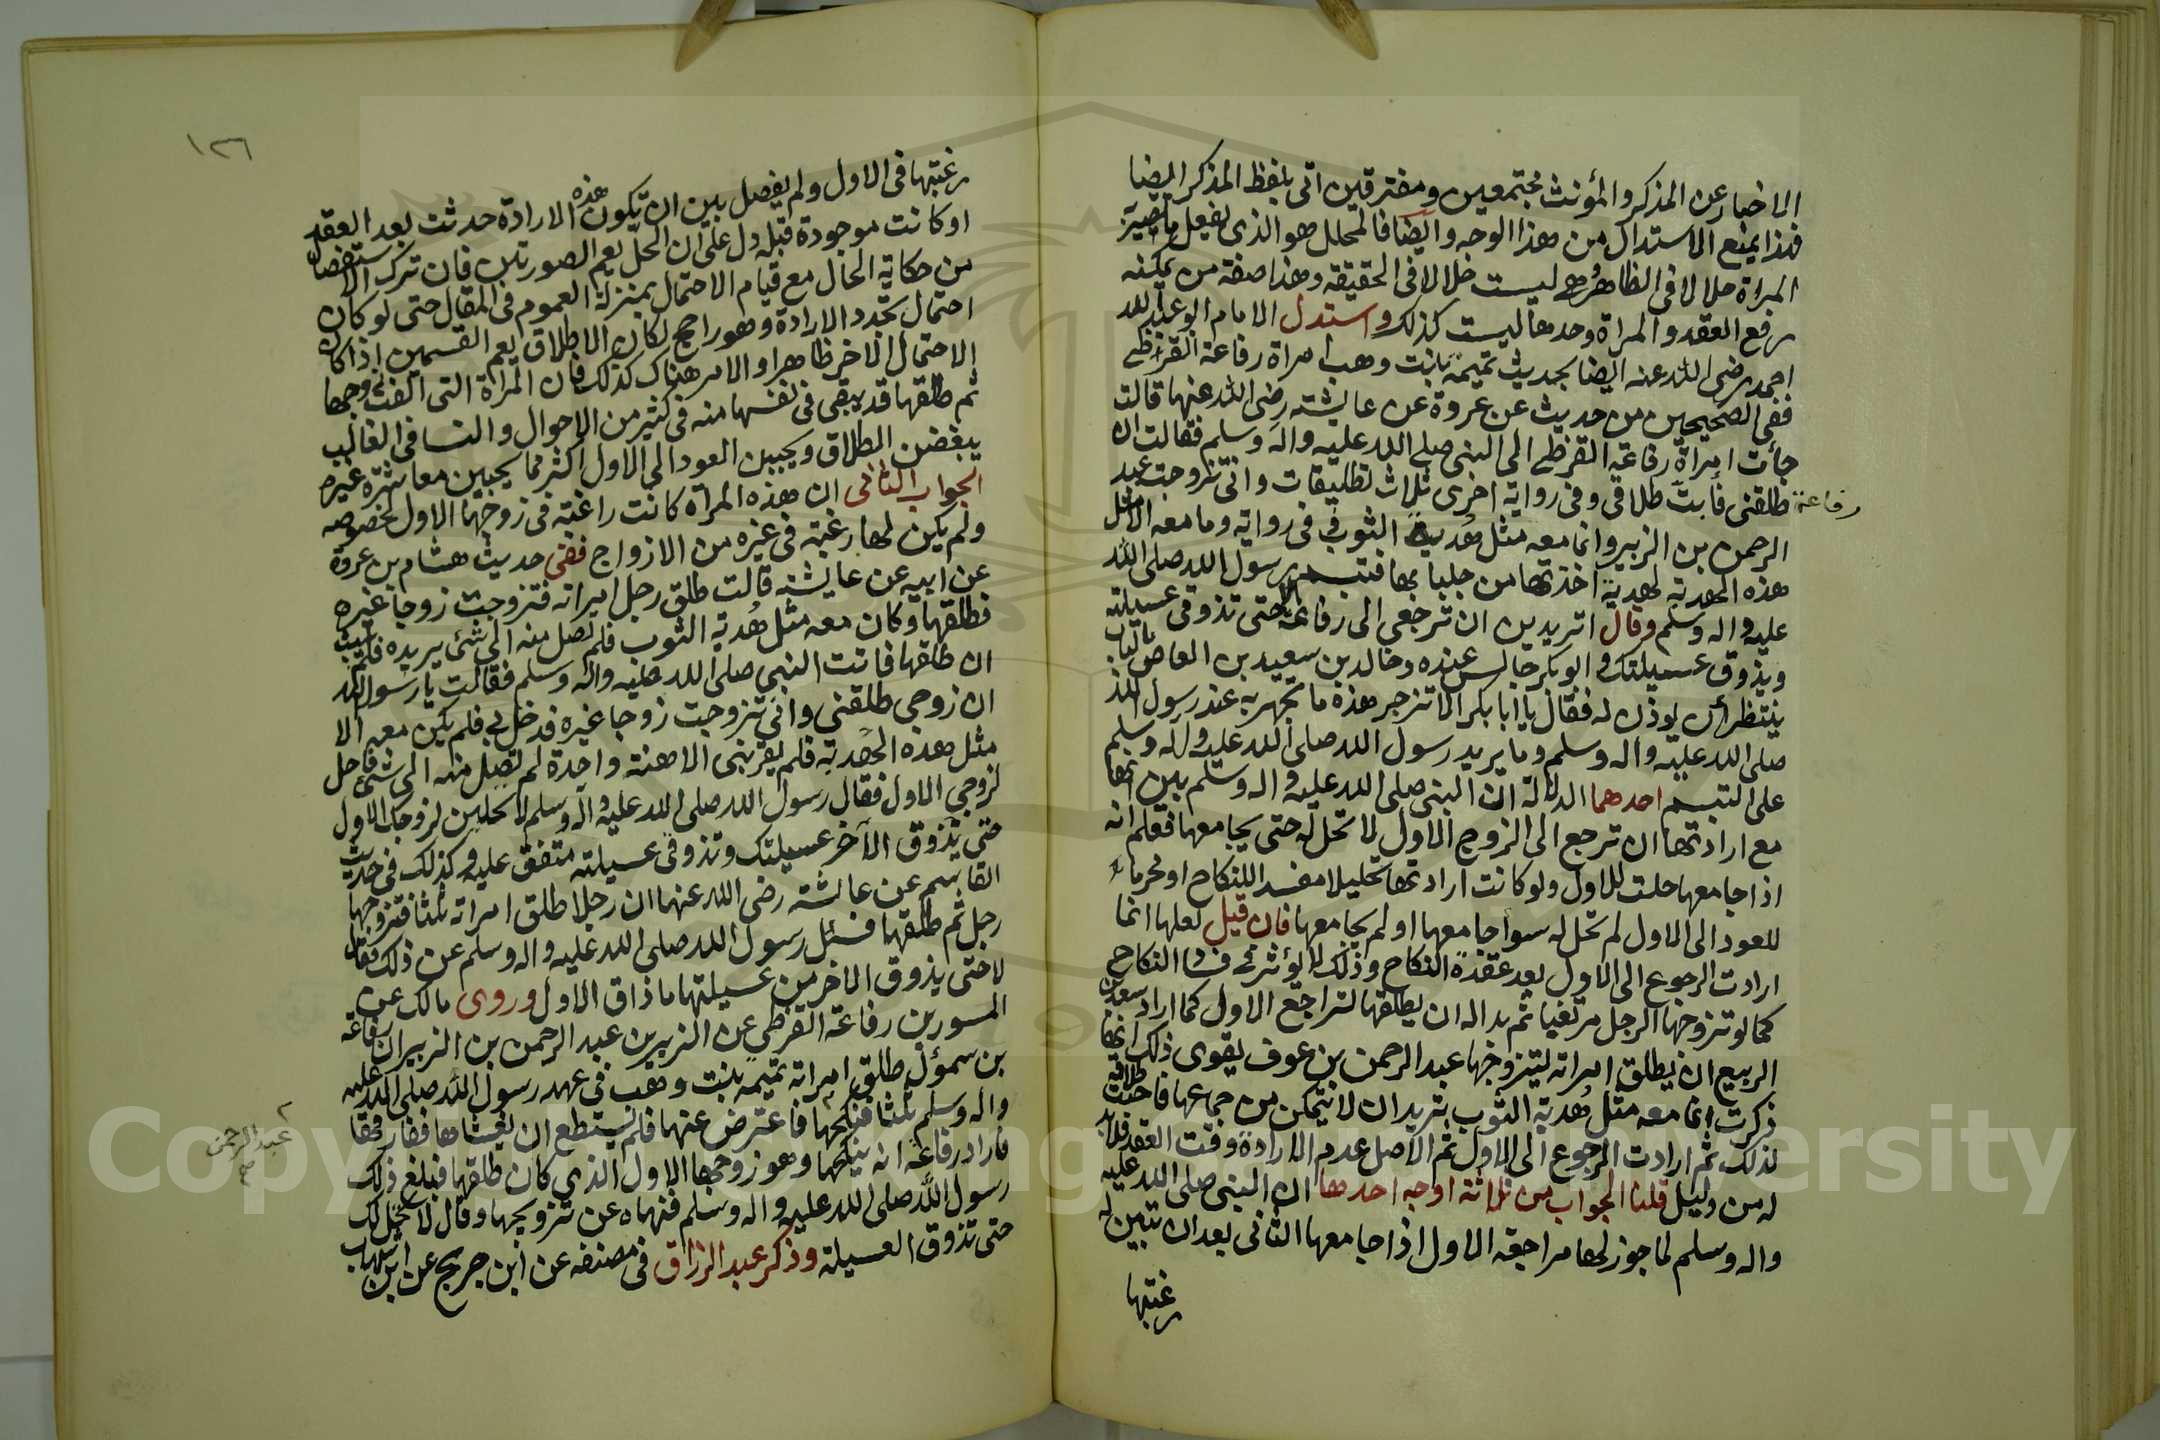 الاخبار عن المذكر والمؤنث مجتمعين ومفترقين اتى بلفظ المذكر ايضا
فهذا يمنع الاستدال من هذا الوجه وايضا فالمحلل هو الذى يفعل ما يصير به
المراة حلالا فى الظاهر وهي ليست حلالا فى الحقيقة وهذا صفة من يمكنه
رفع العقد والمراة وحدها ليست كذلك واستدل الامام ابو عبد الله
احمد رضى الله عنه ايضا بحديث تميمة بنت وهب امراة رفاعة القرظى
ففى الصحيحين من حديث عن عروة عن عايشه رضى الله عنها قالت
جأت امراة رفاعة القرظى الى النبى صلى الله عليه واله وسلم فقالت ان
رفاعة
طلقنى فأبت طلاقى وفى رواية اخرى ثلاث تطليقات وانى تزوجت عبد
الرحمن بن الزبير وانما معه مثل هدبة الثوب فى رواية وما معه الا مثل
هذه الهدبة لهدبة اخذتها من جلبابها فتبسم رسول الله صلى الله
عليه واله وسلم وقال اتريدين ان ترجعي الى رفاعة لا حتى تذوقى عسيلته
ويذوق عسيلتك وابو بكر جالس عنده وخالد بن سعيد بن العاص بالباب
ينتظر أن يوذن له فقال يا ابا بكر الا تزجر هذة ما تجهر به عند رسول الله
صلى الله عليه واله وسلم وما يريد رسول الله صلى الله عليه واله وسلم
على التبسم احدهما الدلالة ان النبى صلى الله عليه واله وسلم بين انها
مع ارادتها ان ترجع الى الزوج الاول لا تحل له حتى يجامعها فعلم انه
اذا جامعها حلت للاول ولو كانت ارادتها تحليلا مفسدا للنكاح او محرما
للعود الى الاول لم تحل له سوا جامعها او لم يجامعها فان قيل لعلها انما
ارادت الرجوع الى الاول بعد عقدة النكاح وذلك لا يؤثر فى فساد النكاح
كما لو تزوجها الرجل مرتغبا ثم بدا له ان يطلقها لتراجع الاول كما اراد سعد بن
الربيع ان يطلق امراته ليتزوجها عبد الرحمن بن عوف يقوى ذلك انها
ذكرت انما معه مثل هدبة الثوب تريد ان لا يتمكن من جماعها فاحبت طلاقه
لذلك ثم ارادت الرجوع الى الاول ثم الاصل عدم الارادة وقت العقد فلا بد
له من دليل قلنا الجواب من ثلاثة اوجه احدها ان النبى صلى الله عليه
واله وسلم لما جوز لها مراجعة الاول اذا جامعها الثانى بعد ان تبين له
رغبتها
١٢٦
رغبتها فى الاول ولم يفصل بين ان تكون هذه الارادة حدثت بعد العقد
او كانت موجودة قبله دل على ان الحل يعم الصورتين فان ترك الاستفصال
من حكاية الحال مع قيام الاحتمال بمنزلة العموم فى المقال حتى لو كان
احتمال تجدد الارادة وهو راجح لكان الاطلاق يعم القسمين اذا كان
الاحتمال الاخر ظاهرا والامر هناك كذلك فان المراة التى الفت زوجها
ثم طلقها قد يبقى فى نفسها منه فى كثير من الاحوال والنسا فى الغالب
يبغضن الطلاق ويحببن العود الى الاول اكثر مما يحببن معاشرة غيره
الجواب الثانى ان هذه المراة كانت راغبة فى زوجها الاول بخصوصه
ولم يكن لها رغبة فى غيره من الازواج ففى حديث هشام بن عروة
عن ابيه عن عايشه قالت طلق رجل امراته فتزوجت زوجا غيره
فطلقها وكان معه مثل هدبة الثوب فلم تصل منه الى شئ يريده فلم يلبث
ان طلقها فاتت النبى صلى الله عليه واله وسلم فقالت يا رسول الله
ان زوجى طلقنى وانى تزوجت زوجا غيره فدخل بي فلم يكن معه الا
مثل هذه الهدبة فلم يقربنى الا هنة واحدة لم تصل منه الى شئ فاحل
لزوجي الاول فقال رسول الله صلى الله عليه واله وسلم لا تحلين لزوجك الاول
حتى يذوق الآخر عسيلتك وتذوقى عسيلته متفق عليه وكذلك فى حديث
القاسم عن عائشة رضى الله عنها ان رجلا طلق امراته ثلثا فتزوجها
رجل ثم طلقها فسئل رسول الله صلى الله عليه واله وسلم عن ذلك فقال
لا حتى يذوق الاخر من عسيلتها ما ذاق الاول وروى مالك عن
المسور بن رفاعة القرظي عن الزبير بن عبد الرحمن بن الزبير ان رفاعة
بن سموئل طلق امراته تميمة بنت وهب فى عهد رسول الله صلى الله عليه
واله وسلم ثلثا فنكحها فاعترض عنها فلم يستطع ان يغشاها ففارقها
عبد الرحمن
فاراد رفاعة انه ينكحها وهو زوجها الاول الذى كان طلقها فبلغ ذلك
رسول الله صلى الله عليه واله وسلم فنهاه عن تزويجها وقال لا تحل لك
حتى تذوق العسيلة وذكر عبد الرزاق فى مصنفه عن ابن جريج عن ابن شهاب
Copyright © King Saud University